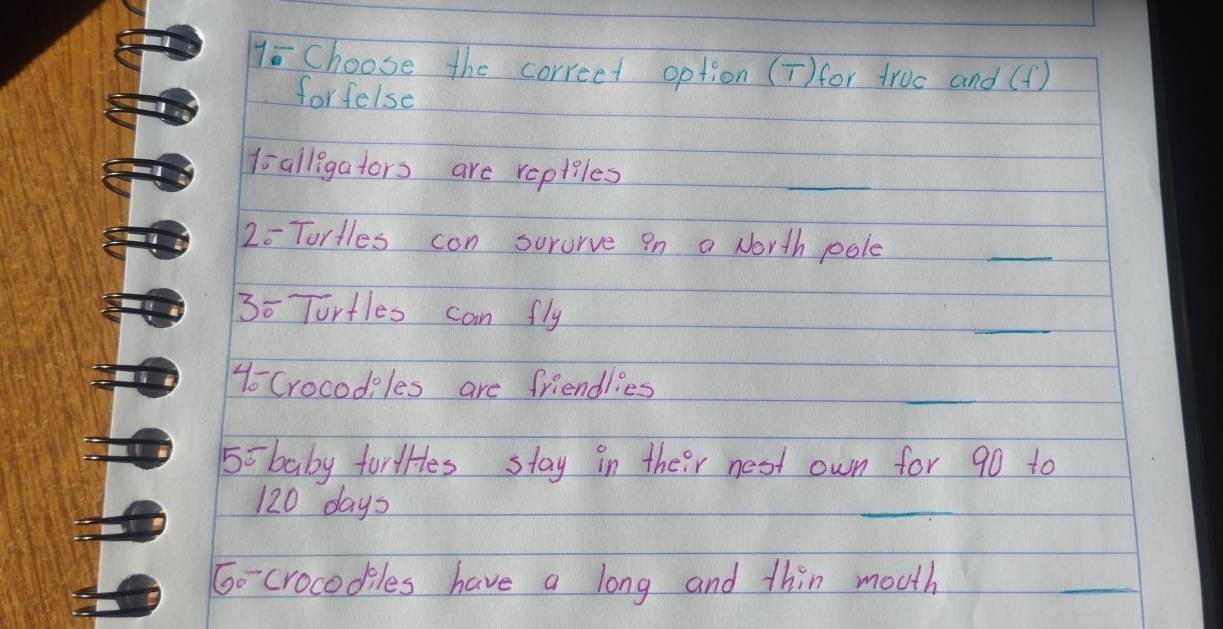 1.- Choose the correct option (T) for true and (f)
for felse
1.- alligators are reptiles ___
2.- Turtles con sururve in a North pole ___
3.- Turtles can fly ___
4.- Crocodiles are friendlies ___
5.- baby turttles stay in their nest own for 90 to
120 days ___
6.- crocodiles have a long and thin mouth ___